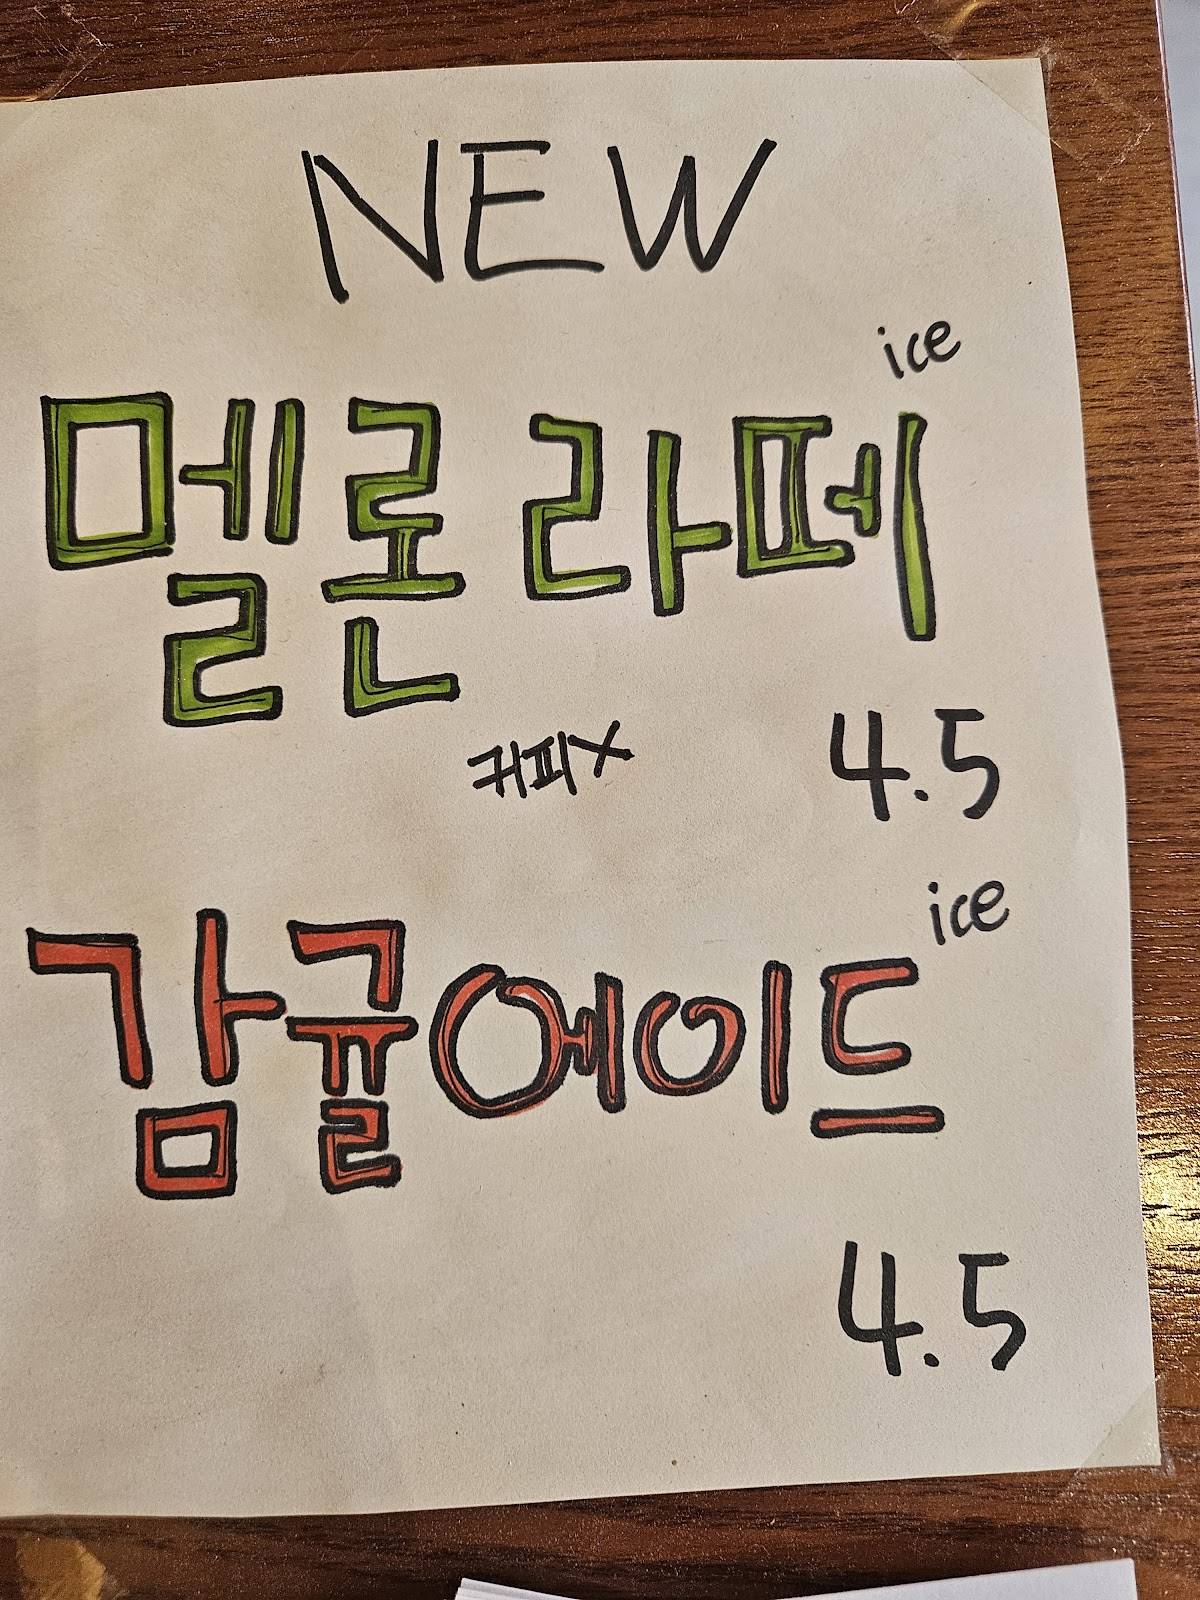 NEW
ice
멜론라떼
커피X
4.5
ice
감귤에이드
4.5